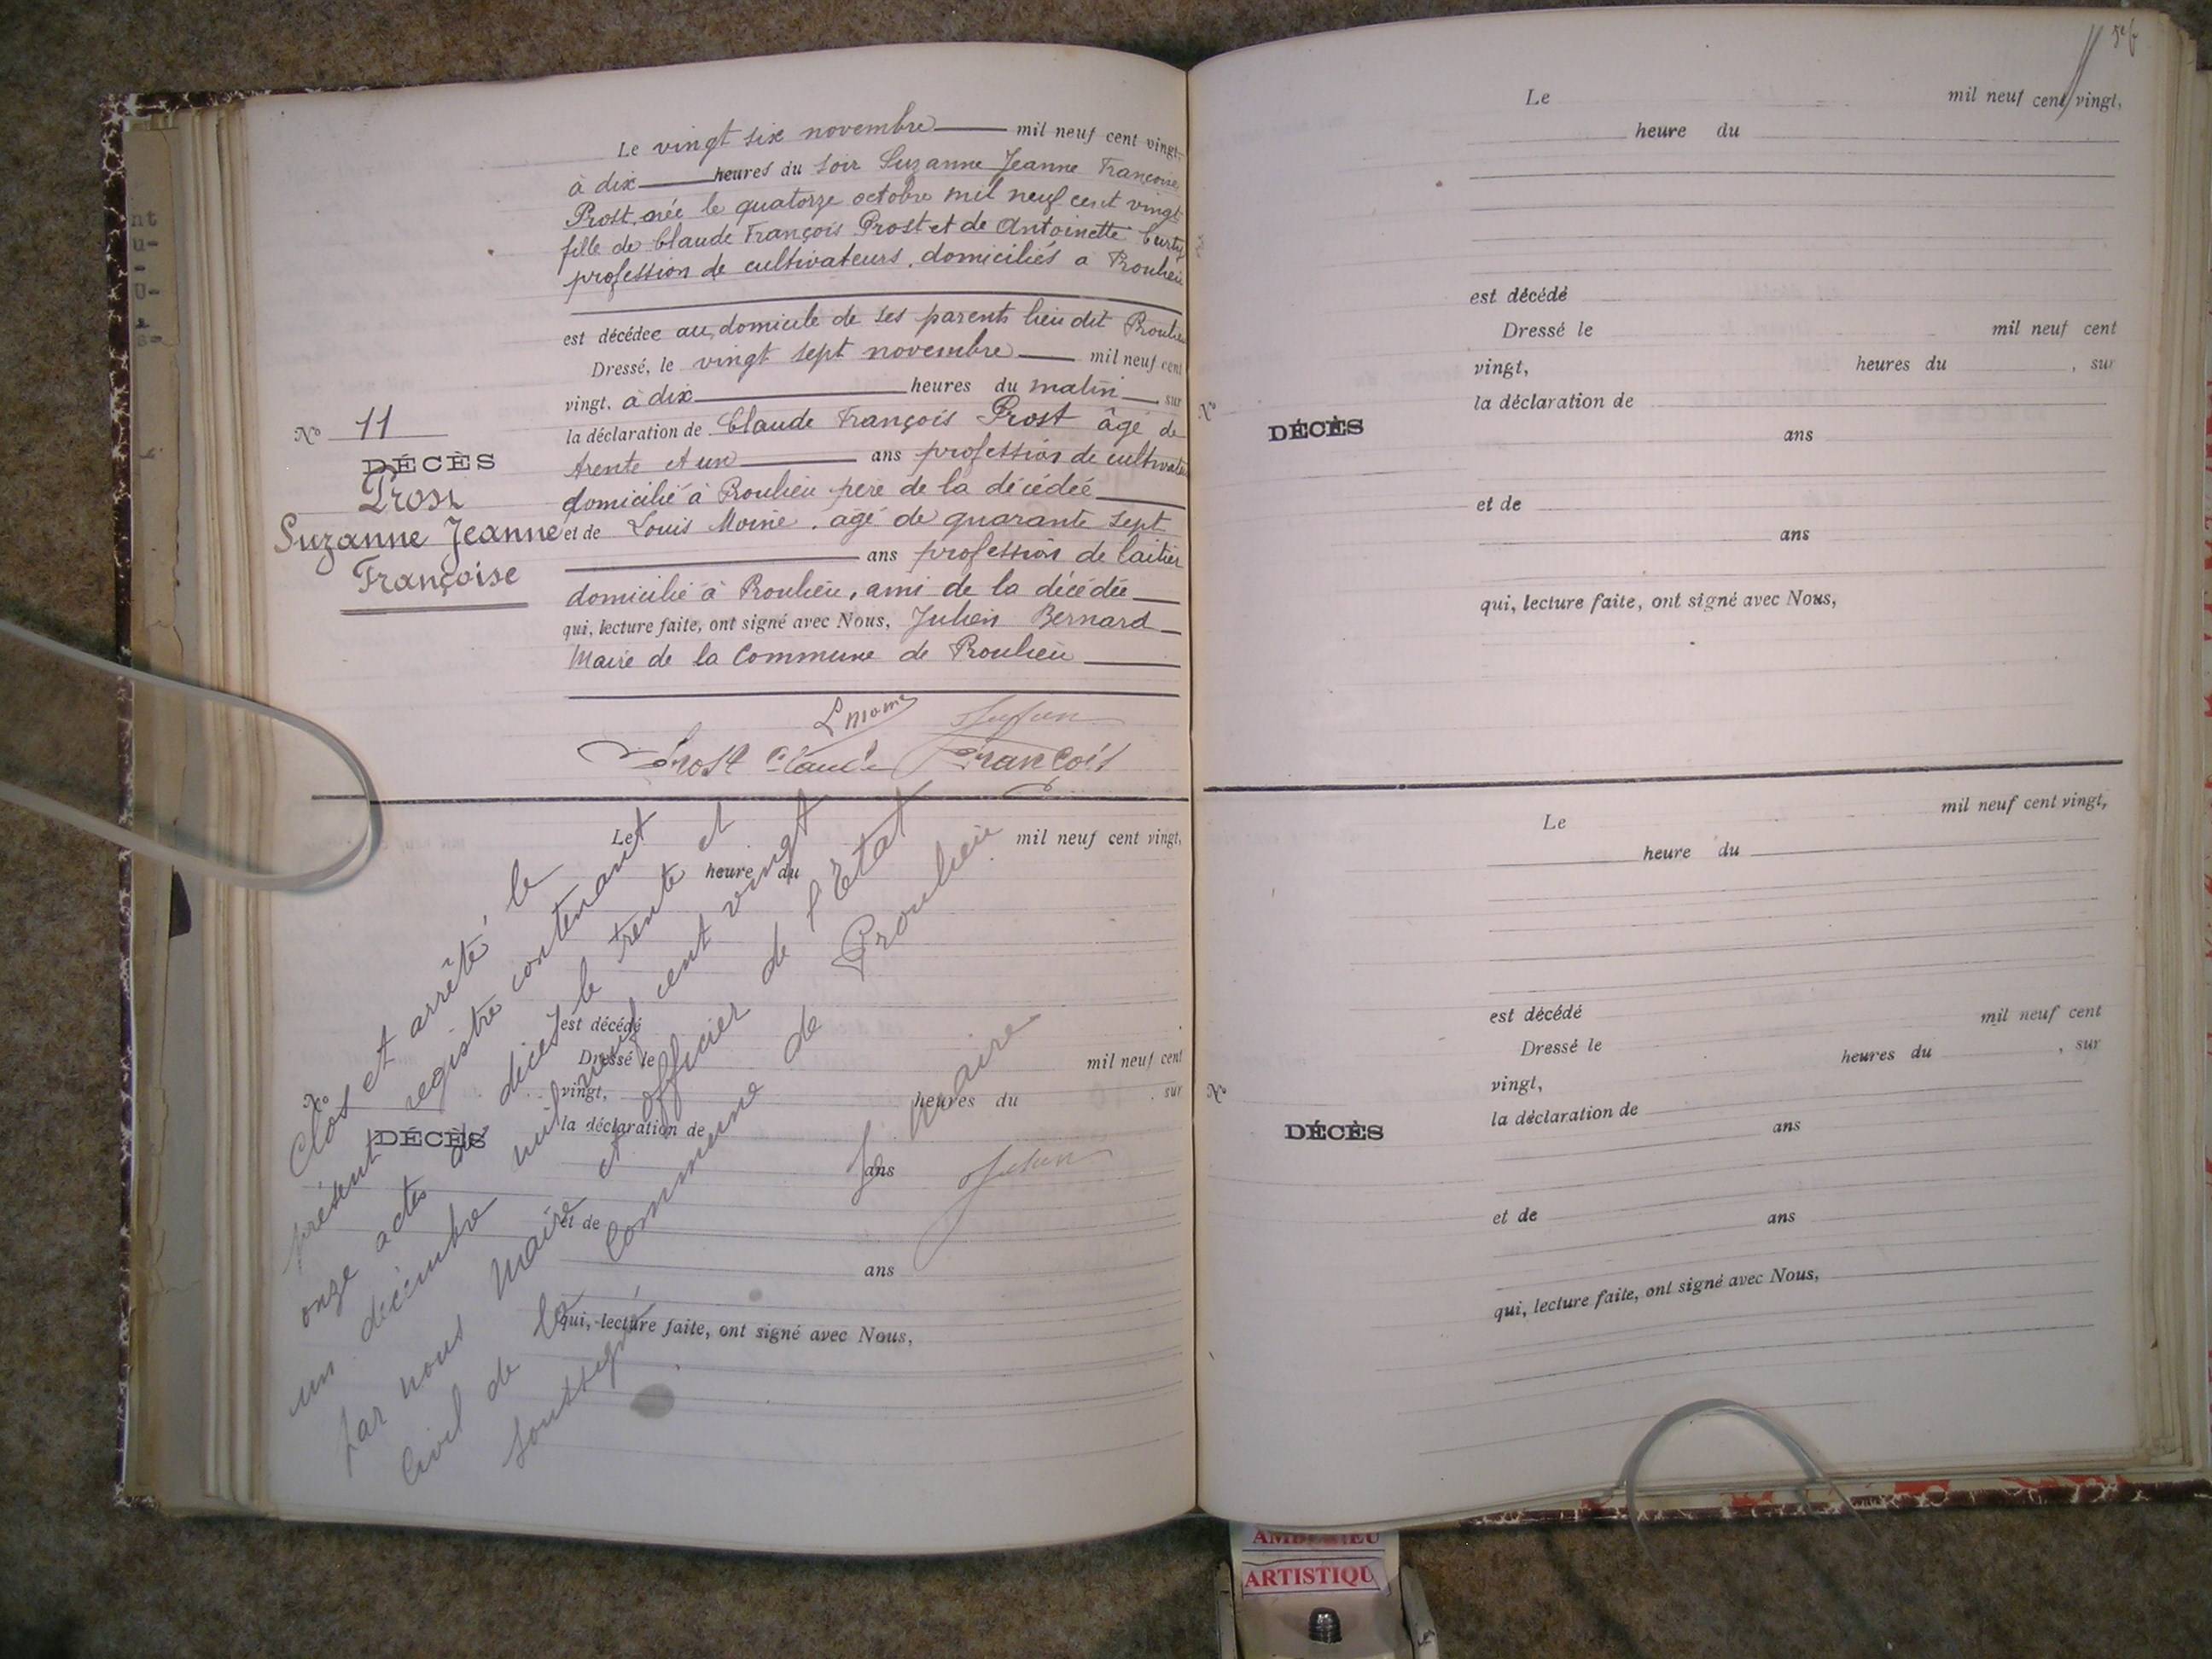 Le vingt six novembre mil neuf cent vingt,
à dix heures du soir Suzanne Jeanne Françoise
Prost, née le quatorze octobre mil neuf cent vingt
fille de Claude François Prost et de Antoinette Curty
profession de cultivateurs, domiciliés a Proulieu
est décédée au domicile de ses parents lieu dit Proulieu
Dressé, le vingt sept novembre mil neuf cent
vingt, à dix heures du matin, sur
la déclaration de Claude François Prost âgé de
trente et un ans profession de cultivateur
domicilié à Proulieu père de la décédée
et de Louis Moine, agé de quarante sept
ans profession de laitier
domicilié à Proulieu, ami de la décédée
qui, lecture faite, ont signé avec Nous, Julien Bernard
Maire de la Commune de Proulieu
L Moine Julien
Prost Claude François
No 11
DÉCÈS
Prost
Suzanne Jeanne
Françoise
Le mil neuf cent vingt,
heure du
est décédé
Dressé le mil neuf cent
vingt, heures du , sur
la déclaration de
ans
et de
ans
qui, lecture faite, ont signé avec Nous,
No
DÉCÈS
Clos et arrêté le
présent registre contenant
onze actes de décès le trente et
un décembre mil neuf cent vingt
par nous Maire et officier de l'Etat
Civil de la Commune de Proulieu
soussigné
Le Maire
Julien
Le mil neuf cent vingt,
heure du
est décédé
Dressé le mil neuf cent
vingt, heures du , sur
la déclaration de
ans
et de
ans
qui, lecture faite, ont signé avec Nous,
No
DÉCÈS
Le mil neuf cent vingt,
heure du
est décédé
Dressé le mil neuf cent
vingt, heures du , sur
la déclaration de
ans
et de
ans
qui, lecture faite, ont signé avec Nous,
No
DÉCÈS
ARTISTIQU